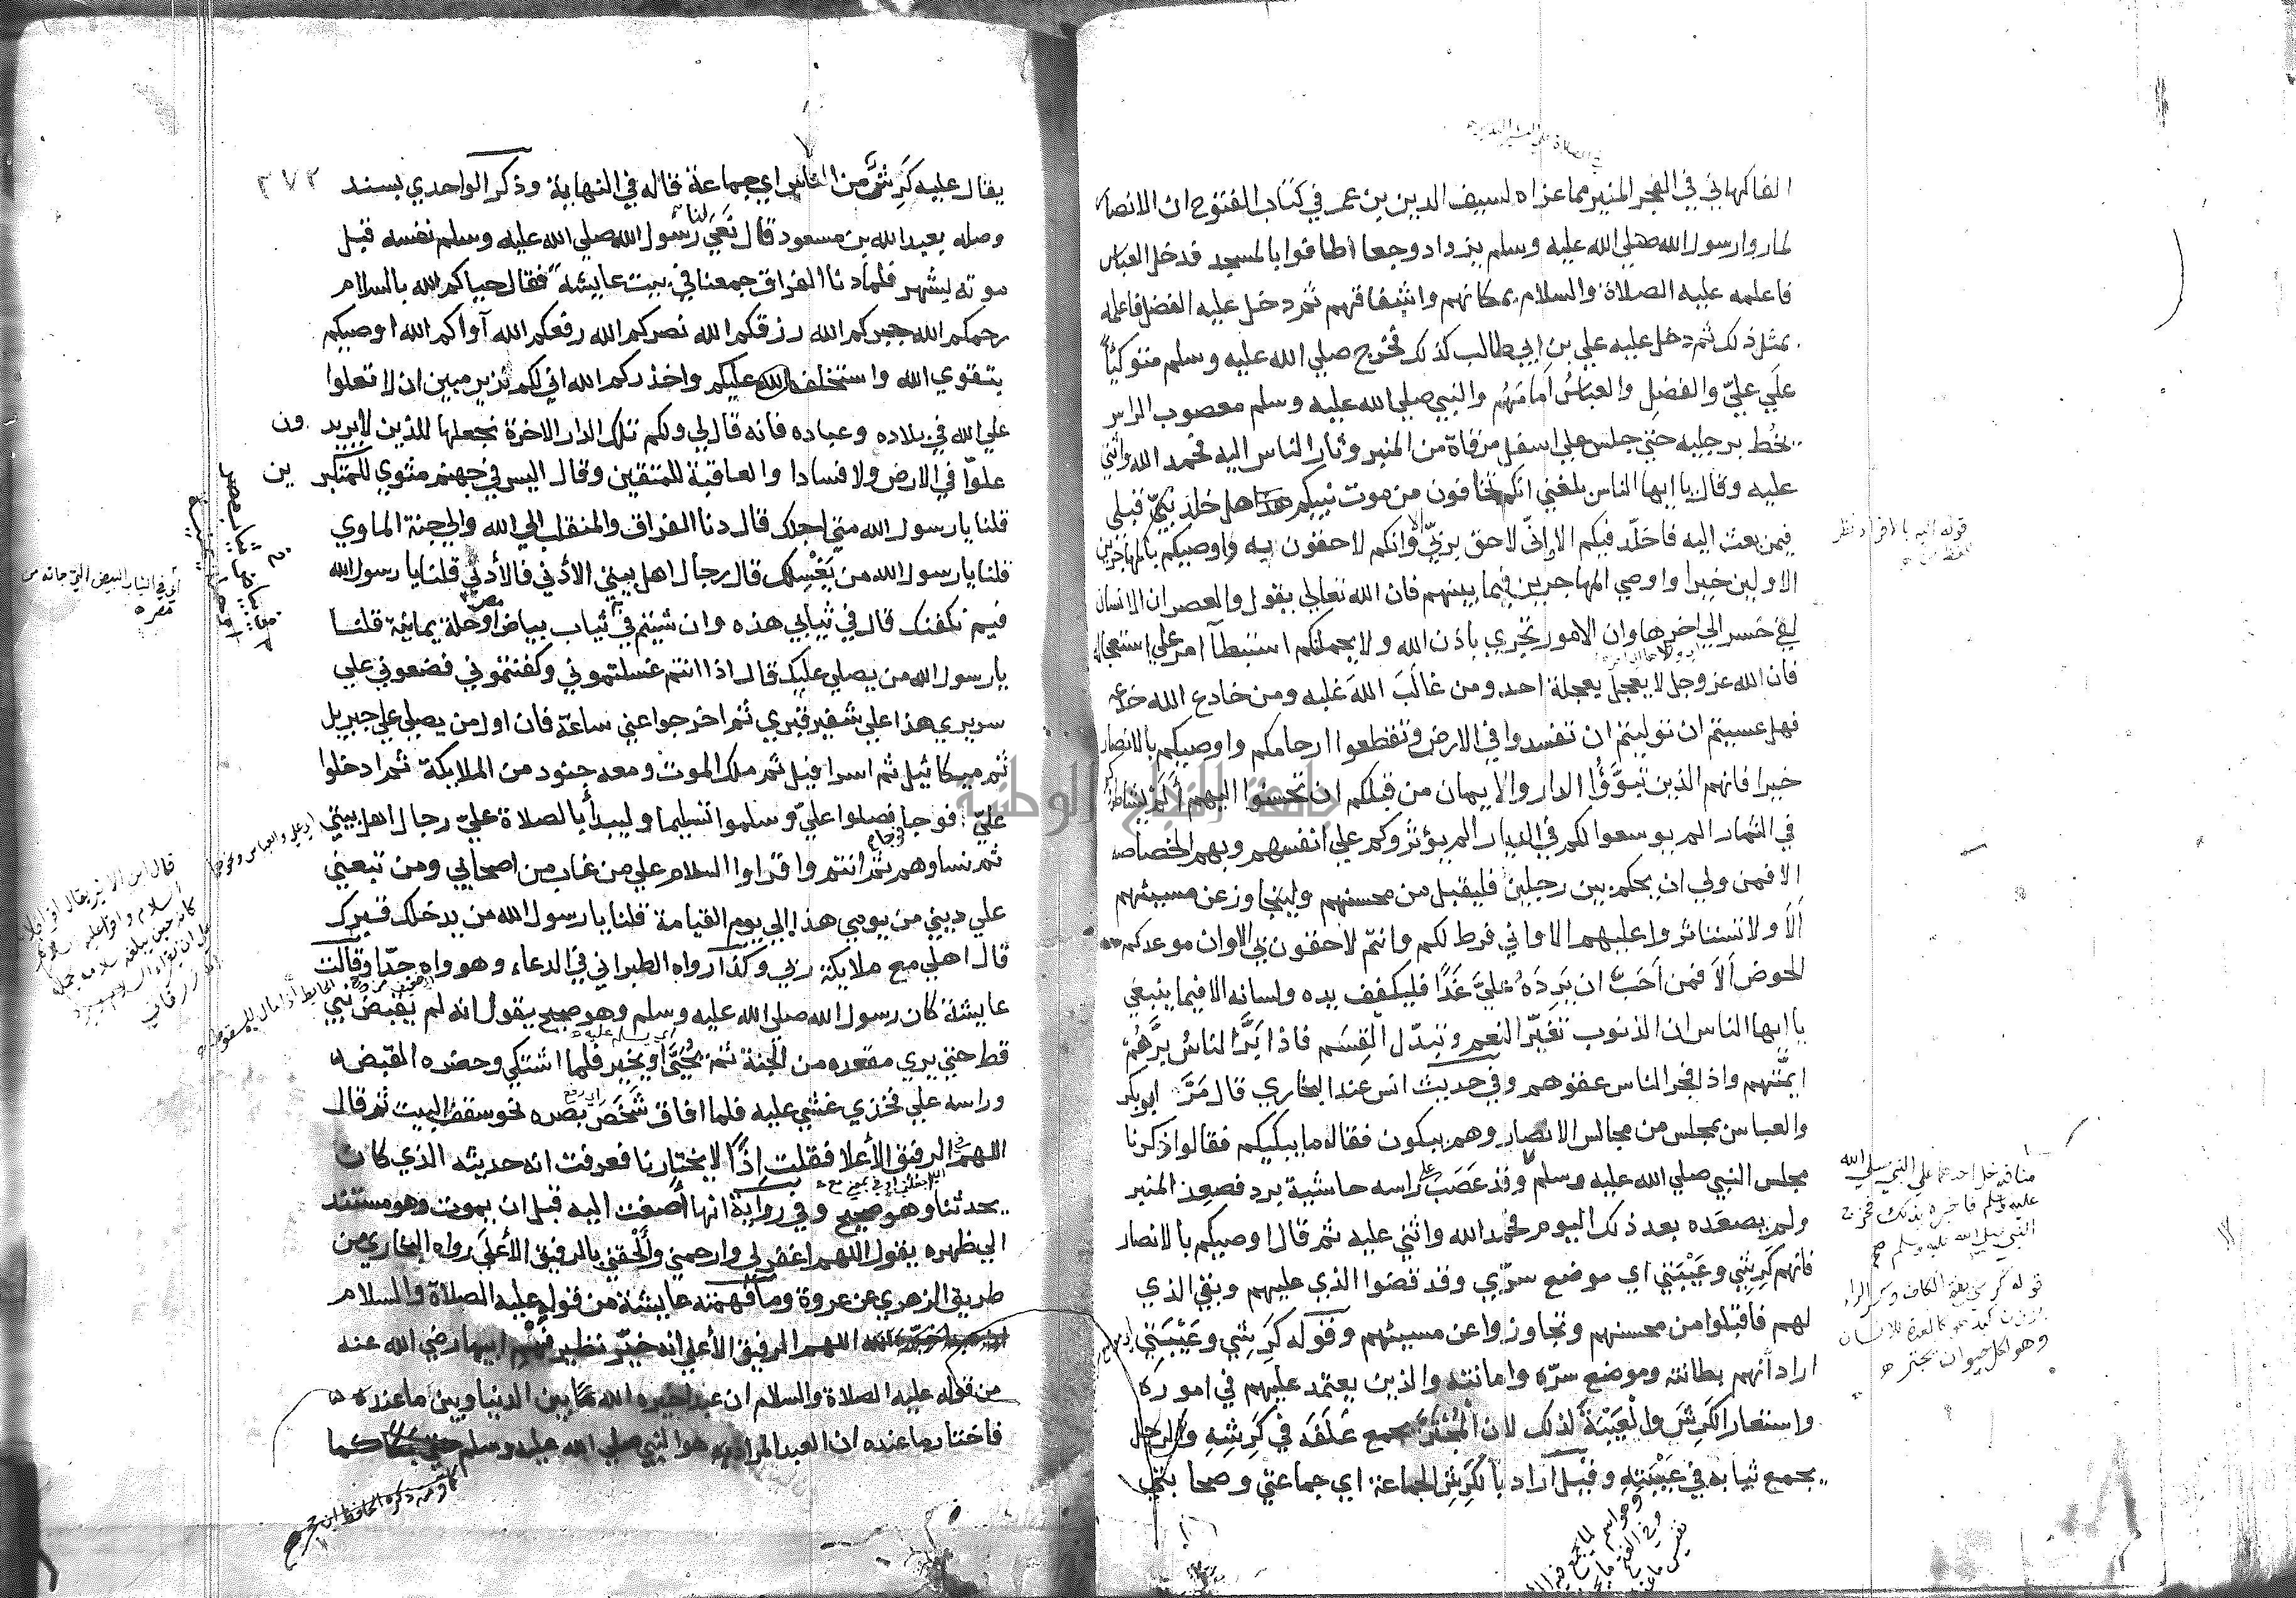 الفاكهاني في الفجر المنير مما عزاه لسيف الدين بن عمر في كتاب الفتوح ان الانصار
لما روا رسول الله صلى الله عليه وسلم يزداد وجعا أطافوا بالمسجد فدخل العباس
فاعلمه عليه الصلاة والسلام بمكانهم واشفاقهم ثم دخل عليه الفضل فاعلمه
بمثل ذلك ثم دخل عليه علي بن ابي طالب كذلك فخرج صلي الله عليه وسلم متوكيًا
علَي عليّ والفضلِ والعباسُ أمامَهُم والنبي صلي الله عليه وسلم معصوب الراس
يخُط برجليه حتي جلس علي اسفل مرقاة من المنبر وثار الناس اليه فحمد الله واثني
عليه وقال يا ايها الناس بلغني انكم تخافون من موت نبيكم هل خلد نبيّ قبلي
فيمن بعث اليه فاخلّد فيكم الا وانّي لاحق بربّي الا وانكم لاحقون به واوصيكم بالمهاجرين
الاولين خيرا واوصي المهاجرين فيما بينهم فان الله تعالي يقول والعصر ان الانسان
لفي خسر الي اخرها وان الامور تجري باذن الله ولا يحملنكم استبطآ امر علي استعجاله
فان الله عز وجل لا يعجل بعجلة احد ومن غالبَ اللهَ غلبه ومن خادع الله خدعه
فهل عسيتم ان توليتم ان تفسدوا في الارض وتقطعوا ارحامكم واوصيكم بالانصار
خيرا فانهم الذين تبوَّؤُا الدار والايمان من قبلكم ان تحسنوا اليهم ألم يشاطروكم
في الثمار الم يوسعوا لكم في الديار الم يؤثروكم علي انفسهم وبهم الخصاصة
الا فمن ولي ان يحكم بين رجلين فليقبل من محسنهم وليتجاوز عن مسيئهم
ألَا ولا تستاثروا عليهم الا واني فرط لكم وانتم لاحقون بي الا وان موعدكم
الحوض ألَا فمن احَبَّ ان يَرِدَهُ عليَّ غدًا فليكفف يده ولسانه الا فيما ينبغي
يا ايها الناس ان الذنوب تغيّر النعم وتبدّل القِسَم فاذا بَرَّ الناسُ بَرَّهُمْ
ايمّتهم واذا فجر الناس عقوهم وفي حديث انس عند البخاري قال مَرَّ ابو بكر
والعباس بمجلس من مجالس الانصار وهم يبكون فقال ما يبكيكم فقالوا ذكرنا
مجلس النبي صلي الله عليه وسلم وقد عَصَبَ علي راسه حاشية برد فصعِد المنبر
ولم يصعَده بعد ذلك اليوم فحمد الله واثني عليه ثم قال اوصيكم بالانصار
فانهم كَرِشِي وعَيْبَتي اي موضع سرّي وقد قضوا الذي عليهم وبقي الذي
لهم فاقبلوا من محسنهم وتجاوزوا عن مسيئهم وقوله كَرِشِي وعَيْبَتِي
اراد انهم بطانته وموضع سرّه وامانته والذين يعتمد عليهم في اموره
واستعار الكَرِشَ والْعَيْبَةَ لذلك لان المُجْتَرَّ يجمع عَلَفَه في كَرِشِهِ والرجل
يجمع ثيابه في عَيْبَتِهِ وقيل اراد بالكَرِشِ الجماعة اي جماعتي وصحابتي
قوله اليه
منافيه خل احد علي النبي صلي الله
عليه وسلم فاخبره بذلك فخرج
النبي صلي الله عليه وسلم صح
قوله كرشي بفتح الكاف وكسر الراء
بوزن كبد هو كالمعدة للانسان
وهو لكل حيوان يجتر
٢٧٢
يقال عليه كَرِشٌ من الناس اي جماعة قاله في النهاية وذكر الواحدي بسند
وصله بعبد الله بن مسعود قال نَعَى لنا رسول الله صلي الله عليه وسلم نفسه قبل
موته بشهر فلما دنا الفراق جمعنا في بيت عايشة فقال حياكم الله بالسلام
رحمكم الله جبركم الله رزقكم الله نصركم الله رفعكم الله آواكم الله اوصيكم
بتقوي الله واستخلف الله عليكم واحذركم الله اني لكم نذير مبين ان لا تعلوا
علي الله في بلاده وعباده فانه قال لي ولكم تلك الدار الاخرة نجعلها للذين لا يريدون
علوّا في الارض ولا فسادا والعاقبة للمتقين وقال اليس في جهنم مثوي للمتكبرين
قلنا يا رسول الله متي اجلك قال دنا الفراق والمنقلب الي الله والي جنة الماوي
قلنا يا رسول الله من يَغْسِلك قال رجال اهل بيتي الأدْني فالأدني قلنا يا رسول الله
فيم نكفنك قال في ثيابي هذه وان شيتم في ثياب بياض مصر او حلة يمانية قلنا
يا رسول الله من يصلي عليك قال اذا انتم غسلتموني وكفنتموني فضعوني علي
سريري هذا علي شفير قبري ثم اخرجوا عني ساعة فان اول من يصلي علي جبريل
ثم ميكائيل ثم اسرافيل ثم ملك الموت ومعه جنود من الملايكة ثم ادخلوا
عليّ فوجا فوجا فصلوا عليّ وسلموا تسليما وليبدأ بالصلاة عليّ رجال اهل بيتي
ثم نساوهم ثم انتم واقراوا السلام علي من غاب من اصحابي ومن تبعني
علي ديني من يومي هذا إلي يوم القيامة قلنا يا رسول الله من يدخلك قبرك
قال اهلي مع ملايكة ربي وكذا رواه الطبراني في الدعاء وهو واه جدّا وقالت
عايشة كان رسول الله صلي الله عليه وسلم وهو صحيح يقول انه لم يُقبض نبي
قط حتي يري مقعده من الجنة ثم يُحَيَّي او يخير فلما اشتكي وحضره القبض
وراسه علي فخذي غشي عليه فلما افاق شَخَصَ بصره نحو سقف البيت ثم قال
اللهم في الرفيق الأعلا فقلت إذًا لا يختارنا فعرفت انه حديثه الذي كان
يحدثنا وهو صحيح وفي رواية انها أصغت اليه قبل ان يموت وهو مستند
الي ظهره يقول اللهم اغفر لي وارحمني وأَلْحِقني بالرفيق الأعلَي رواه البخاري من
طريق الزهري عن عروة وما فهمته عايشة من قوله عليه الصلاة والسلام
اللهم الرفيق الأعلي انه خيّر نظير فهم ابيها رضي الله عنه
من قوله عليه الصلاة والسلام ان عبدا خيره الله ما بين الدنيا وبين ما عنده
فاختار ما عنده ان العبد المراد به هو النبي صلي الله عليه وسلم حتي بكا كما
ذكره الحافظ ابن حجر
أي في الثياب البيض التي جاته من
مصر
اي علي والعباس ونحوهما
جامعة النجاح الوطنية